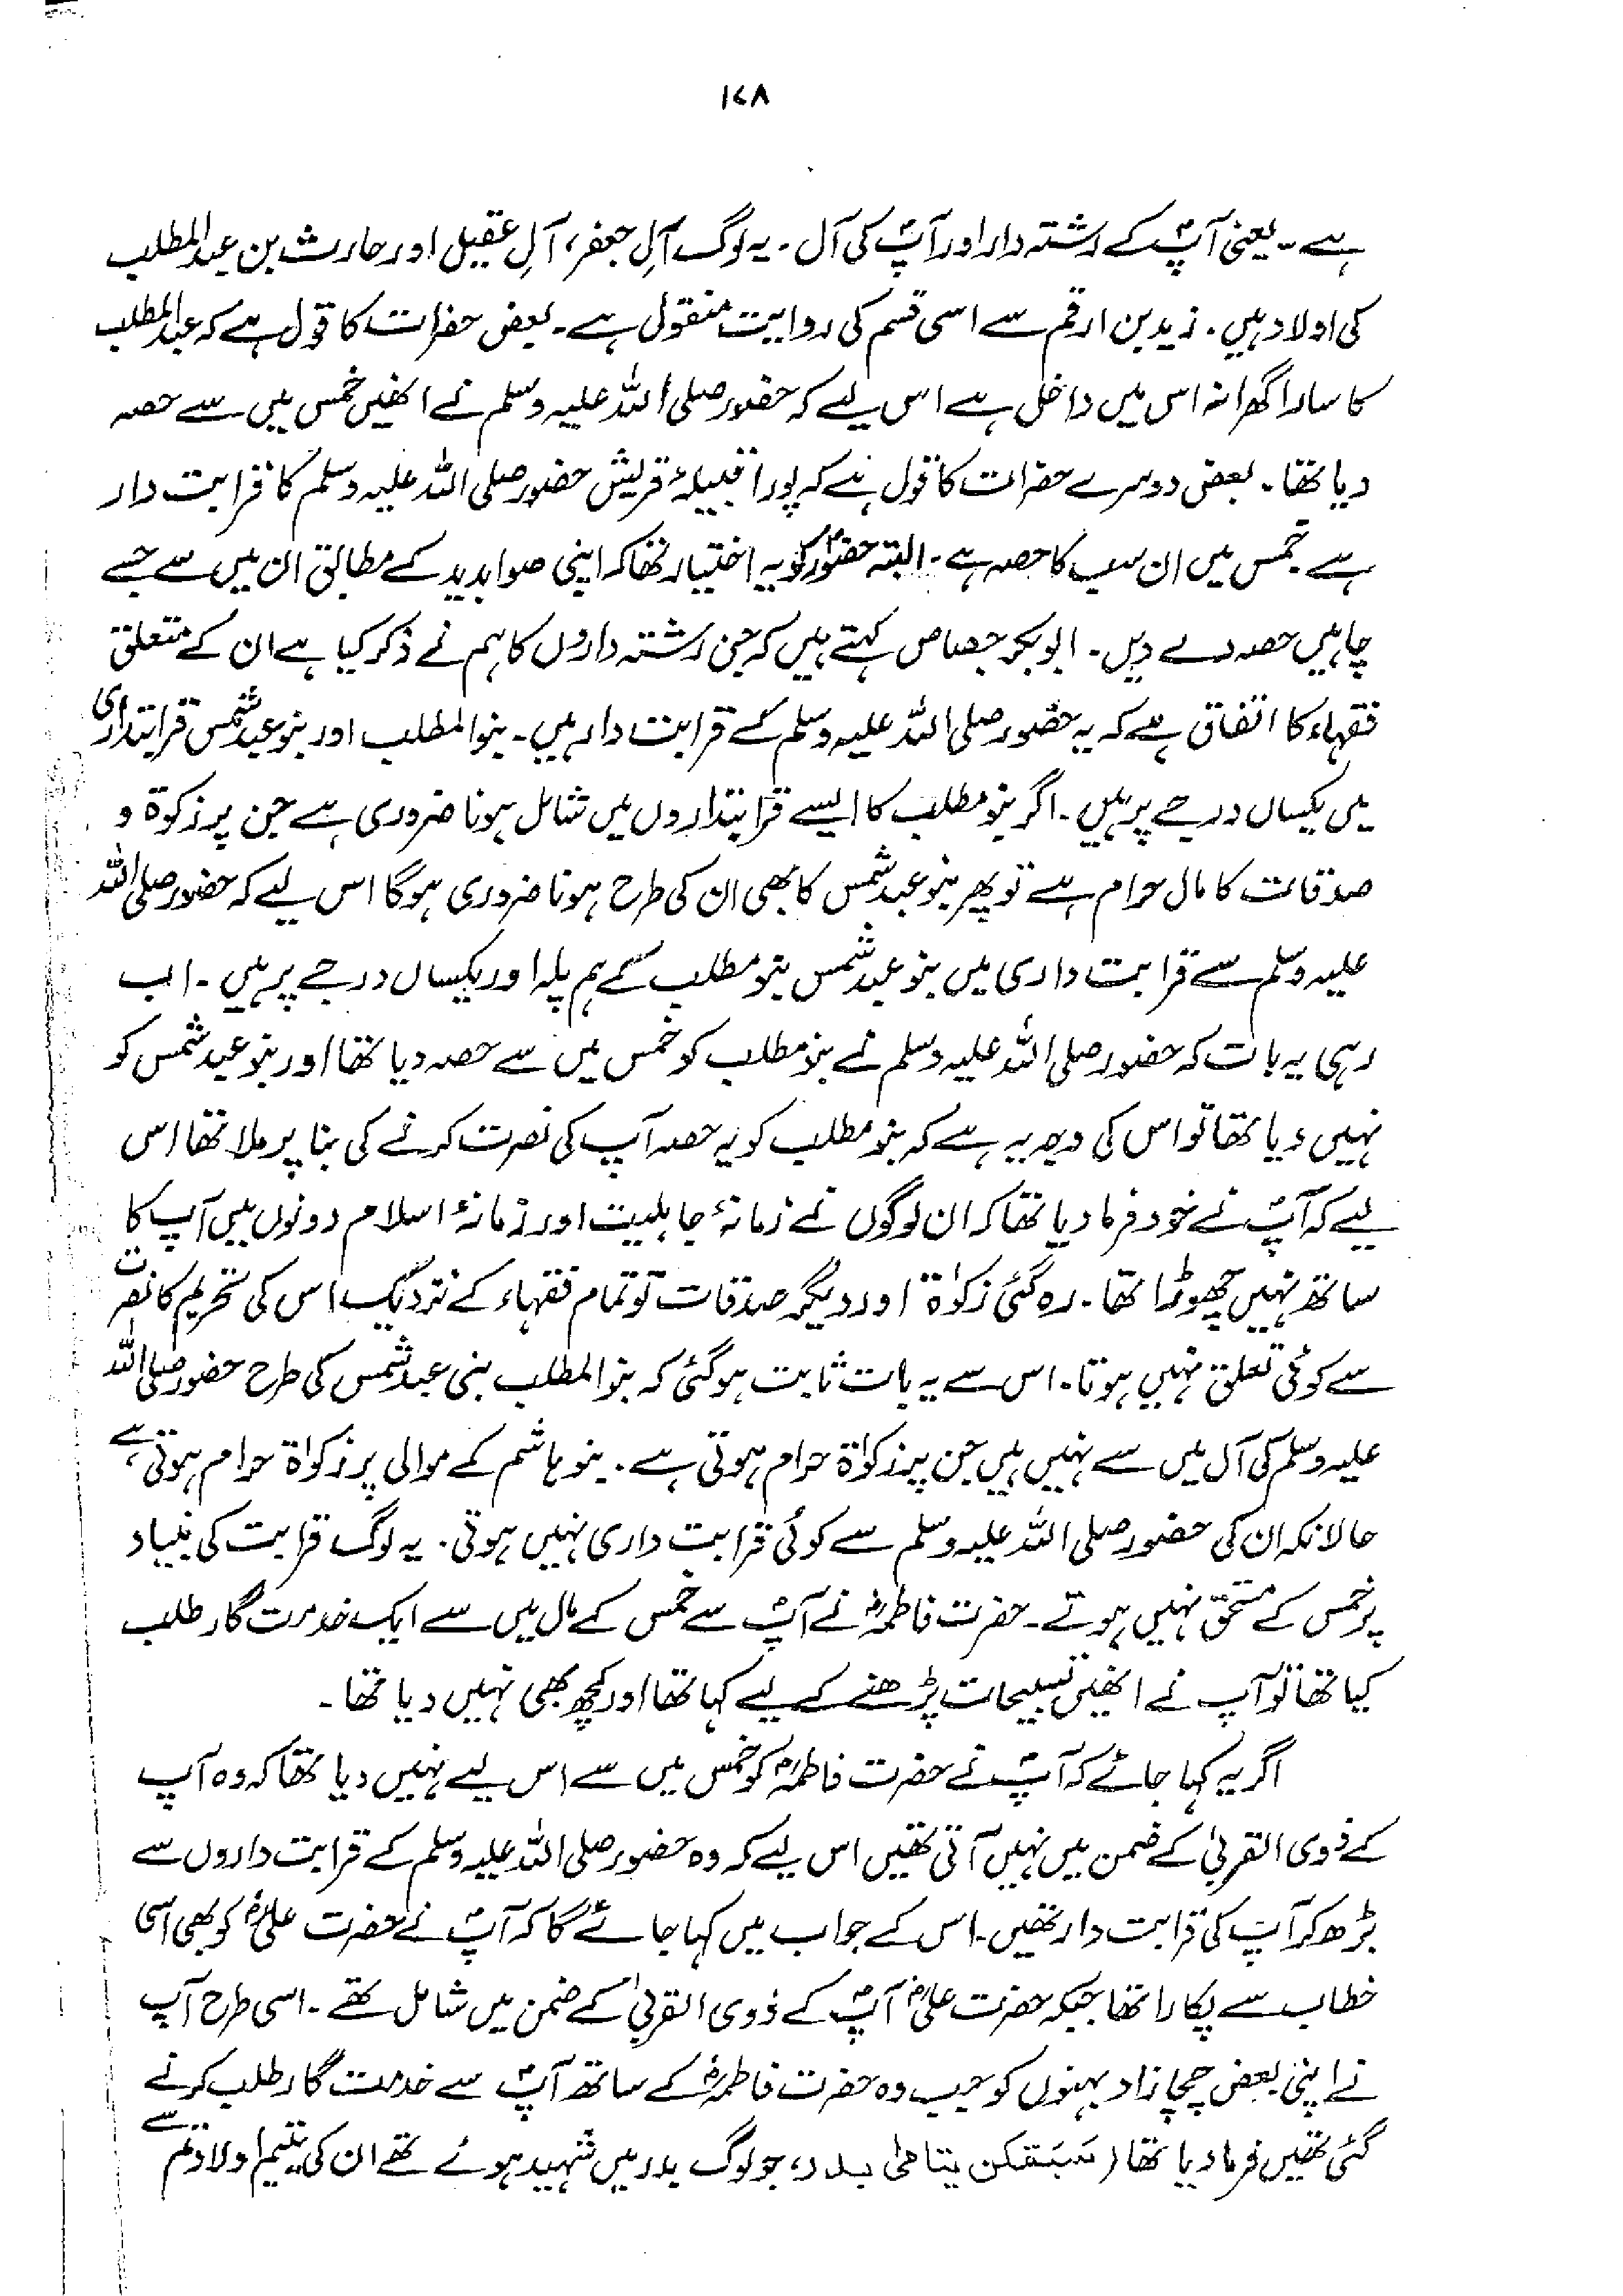 ۱۷۸
ہے۔ یعنی آپؐ کے رشتہ دار اور آپؐ کی آل۔ یہ لوگ آلِ جعفر، آلِ عقیل اور حارث بن عبدالمطلب
کی اولاد ہیں۔ زید بن ارقم سے اسی قسم کی روایت منقول ہے۔ بعض حضرات کا قول ہے کہ عبدالمطلب
کا سارا گھرانہ اس میں داخل ہے اس لیے کہ حضور صلی اللہ علیہ وسلم نے انھیں خمس میں سے حصہ
دیا تھا۔ بعض دوسرے حضرات کا قول ہے کہ پورا قبیلۂ قریش حضور صلی اللہ علیہ وسلم کا قرابت دار
ہے خمس میں ان سب کا حصہ ہے۔ البتہ حضورؐ کو یہ اختیار تھا کہ اپنی صوابدید کے مطابق ان میں سے جسے
چاہیں حصہ دے دیں۔ ابوبکر جصاص کہتے ہیں کہ جن رشتہ داروں کا ہم نے ذکر کیا ہے ان کے متعلق
فقہاء کا اتفاق ہے کہ یہ حضور صلی اللہ علیہ وسلم کے قرابت دار ہیں۔ بنو المطلب اور بنو عبد شمس قرابتداری
میں یکساں درجے پر ہیں۔ اگر بنو مطلب کا ایسے قرابتداروں میں شامل ہونا ضروری ہے جن پر زکوٰۃ و
صدقات کا مال حرام ہے تو پھر بنو عبد شمس کا بھی ان کی طرح ہونا ضروری ہوگا اس لیے کہ حضور صلی اللہ
علیہ وسلم سے قرابت داری میں بنو عبد شمس بنو مطلب کے ہم پلہ اور یکساں درجے پر ہیں۔ اب
رہی یہ بات کہ حضور صلی اللہ علیہ وسلم نے بنو مطلب کو خمس میں سے حصہ دیا تھا اور بنو عبد شمس کو
نہیں دیا تھا تو اس کی وجہ یہ ہے کہ بنو مطلب کو یہ حصہ آپ کی نصرت کرنے کی بنا پر ملا تھا اس
لیے کہ آپؐ نے خود فرما دیا تھا کہ ان لوگوں نے زمانۂ جاہلیت اور زمانۂ اسلام دونوں میں آپ کا
ساتھ نہیں چھوڑا تھا۔ رہ گئی زکوٰۃ اور دیگر صدقات تو تمام فقہاء کے نزدیک اس کی تحریم کا نصرت
سے کوئی تعلق نہیں ہوتا۔ اس سے یہ بات ثابت ہوگئی کہ بنو المطلب بنی عبد شمس کی طرح حضور صلی اللہ
علیہ وسلم کی آل میں سے نہیں ہیں جن پر زکوٰۃ حرام ہوتی ہے۔ بنو ہاشم کے موالی پر زکوٰۃ حرام ہوتی ہے
حالانکہ ان کی حضور صلی اللہ علیہ وسلم سے کوئی قرابت داری نہیں ہوتی۔ یہ لوگ قرابت کی بنیاد
پر خمس کے مستحق نہیں ہوتے۔ حضرت فاطمہؓ نے آپؐ سے خمس کے مال میں سے ایک خدمت گار طلب
کیا تھا تو آپ نے انھیں تسبیحات پڑھنے کے لیے کہا تھا اور کچھ بھی نہیں دیا تھا۔
اگر یہ کہا جائے کہ آپؐ نے حضرت فاطمہؓ کو خمس میں سے اس لیے نہیں دیا تھا کہ وہ آپ
کے ذوی القربیٰ کے ضمن میں نہیں آتی تھیں اس لیے کہ وہ حضور صلی اللہ علیہ وسلم کے قرابت داروں سے
بڑھ کر آپ کی قرابت دار تھیں۔ اس کے جواب میں کہا جائے گا کہ آپؐ نے حضرت علیؓ کو بھی اسی
خطاب سے پکارا تھا جبکہ حضرت علیؓ آپؐ کے ذوی القربیٰ کے ضمن میں شامل تھے۔ اسی طرح آپ
نے اپنی بعض چچا زاد بہنوں کو جب وہ حضرت فاطمہؓ کے ساتھ آپؐ سے خدمت گار طلب کرنے
گئی تھیں فرما دیا تھا (سبقکن یتامیٰ بدر، جو لوگ بدر میں شہید ہوئے تھے ان کی یتیم اولاد تم سے